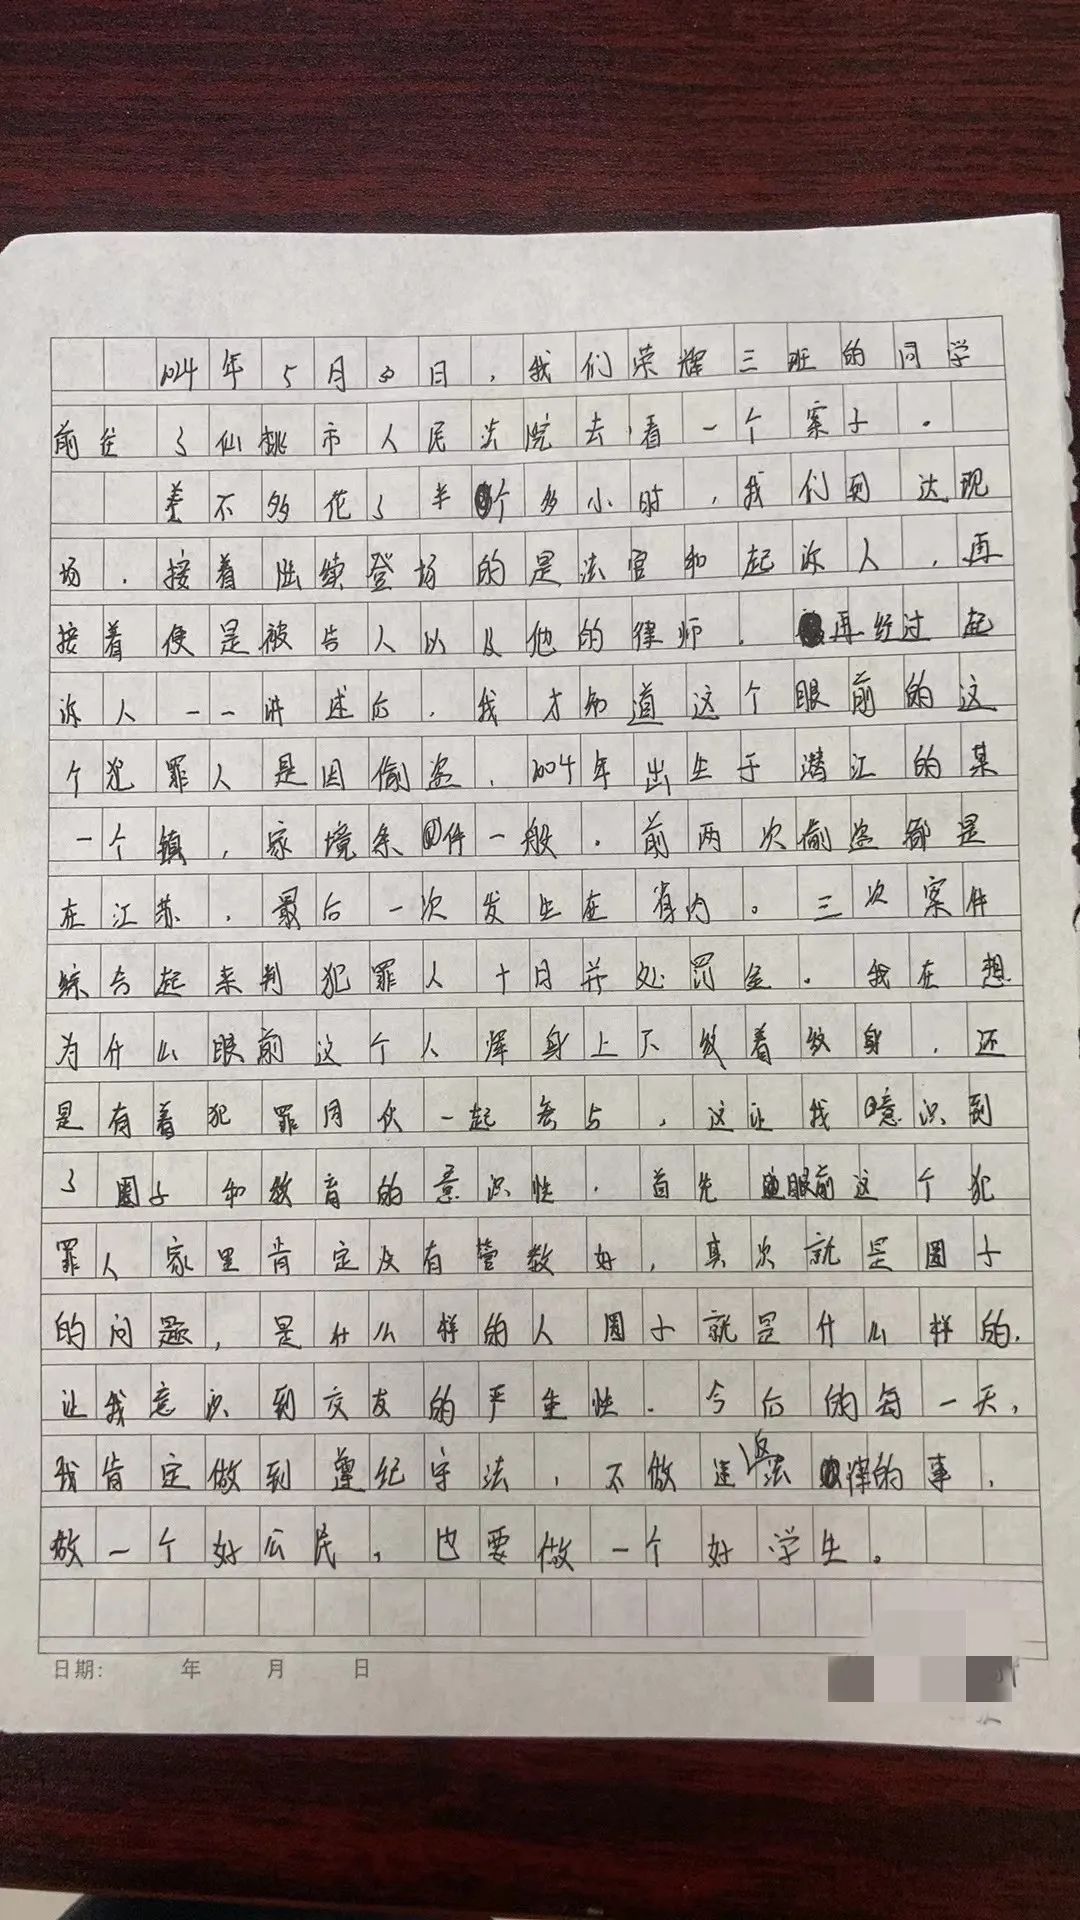 2024年5月30日，我们荣辉三班的同学
前往了仙桃市人民法院去看一个案子。
差不多花了半个多小时，我们到达现
场，接着陆续登场的是法官和起诉人，再
接着便是被告人以及他的律师。再经过起
诉人一一讲述后，我才知道这个眼前的这
个犯罪人是因偷盗，2004年出生于潜江的某
一个镇，家境条件一般。前两次偷盗都是
在江苏，最后一次发生在省内。三次案件
综合起来判犯罪人十日并处罚金。我在想
为什么眼前这个人浑身上下纹着纹身，还
是有着犯罪同伙一起参与，这让我意识到
了圈子和教育的意识性。首先眼前这个犯
罪人家里肯定没有管教好，其次就是圈子
的问题，是什么样的人圈子就是什么样的，
让我意识到交友的严重性。今后的每一天，
我肯定做到遵纪守法，不做违反法律的事，
做一个好公民，也要做一个好学生。
日期：　年　月　日